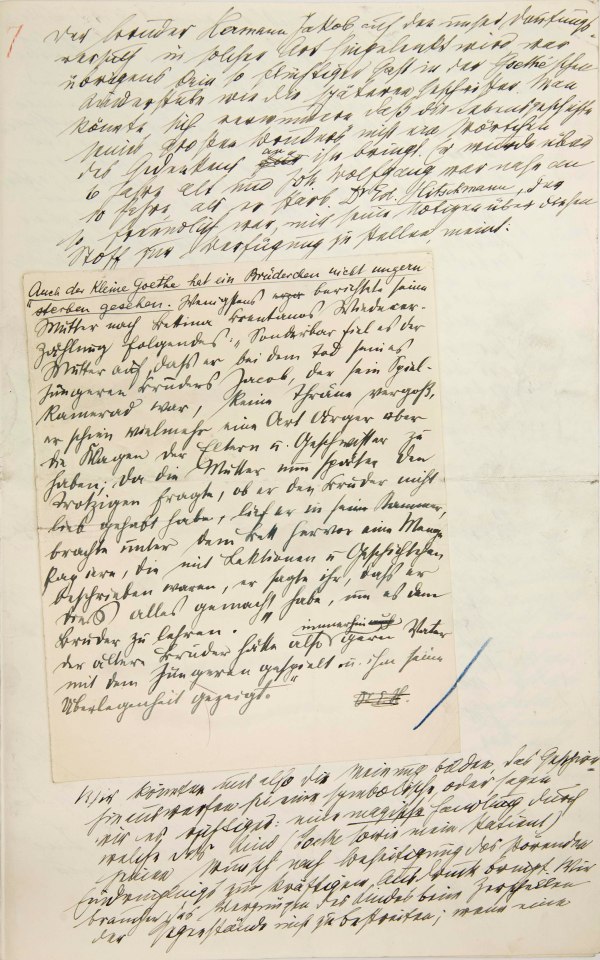 7
Der Bruder Hermann Jakob auf den unser Deutungs-
versuch in solcher Art hingelenkt wird, war
übrigens kein so flüchtiger Gast in der Goethe'schen
Kinderstube wie die späteren Geschwister. Man
könnte sich verwundern, daß die Lebensgeschichte
seines großen Bruders nicht ein Wörtchen
des Gedenkens an ihn bringt. Er wurde über
6 Jahre alt und Joh. Wolfgang war nahe an
10 Jahre, als er starb. Dr Ed. Hitschmann, der
so freundlich war, mir seine Notizen über diesen
Stoff zur Verfügung zu stellen, meint:
Auch der kleine Goethe hat ein Brüderchen nicht ungern
sterben gesehen. Wenigstens berichtete seine
Mutter nach Bettina Brentanos Wiederer-
zählung folgendes: „Sonderbar fiel es der
Mutter auf, daß er bei dem Tod seines
jüngeren Bruders Jacob, der sein Spiel-
kamerad war, keine Thräne vergoß,
er schien vielmehr eine Art Ärger über
die Klagen der Eltern u. Geschwister zu
haben; da die Mutter nun später den
Trotzigen fragte, ob er den Bruder nicht
lieb gehabt habe, lief er in seine Kammer,
brachte unter dem Bett hervor eine Menge
Papiere, die mit Lektionen u Geschichtchen
beschrieben waren, er sagte ihr, dass er
dies alles gemacht habe, um es dem
Bruder zu lehren."
der ältere Bruder hätte also immerhin gern Vater
mit dem Jüngeren gespielt u. ihm seine
Überlegenheit gezeigt."
Dr. E. H.
Wir könnten uns also die Meinung bilden, das Geschirr-
hinauswerfen sei eine symbolische, oder sagen
wir es richtiger: eine magische Handlung, durch
welche das Kind (Goethe sowie mein Patient)
seinen Wunsch nach Beseitigung des störenden
Eindringlings zu kräftigem Ausdruck bringt. Wir
brauchen das Vergnügen des Kindes beim Zerschellen
der Gegenstände nicht zu bestreiten; wenn eine